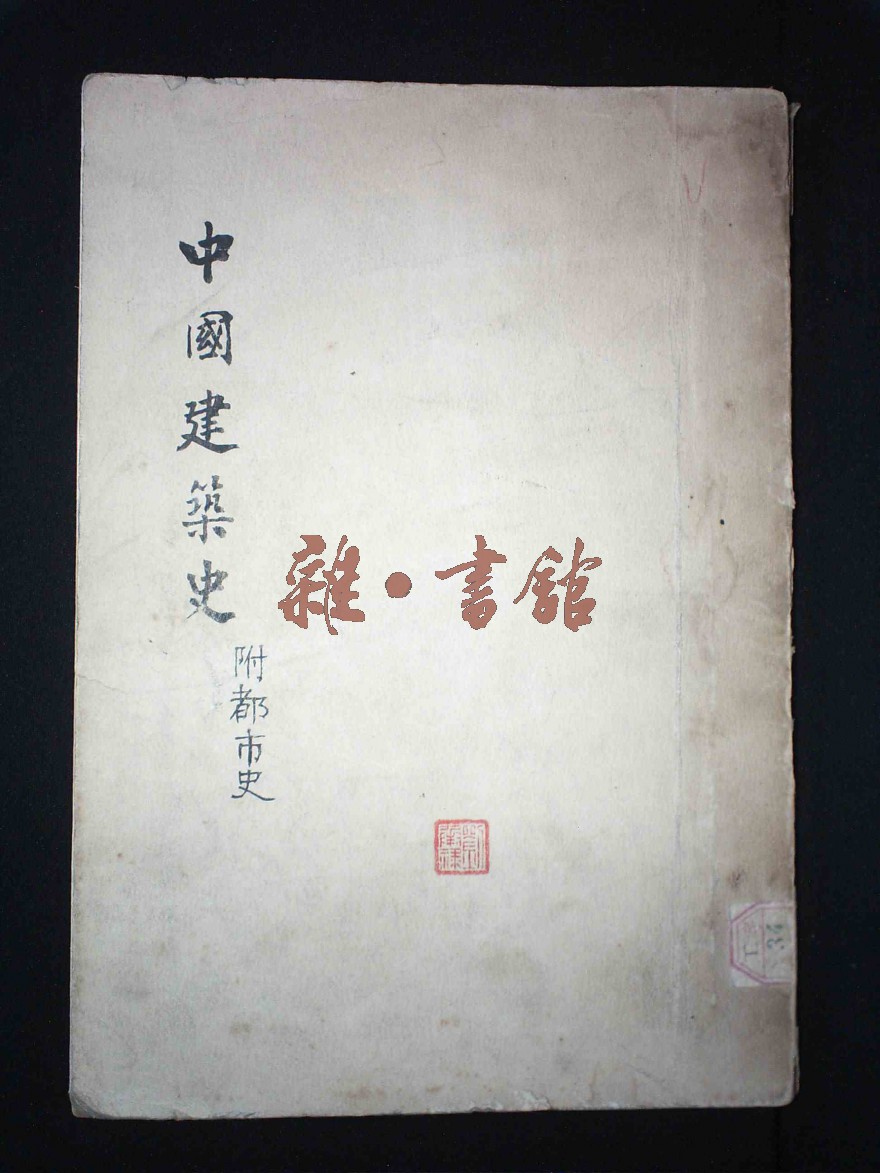 中國建築史
附都市史
雜·書館
T
34